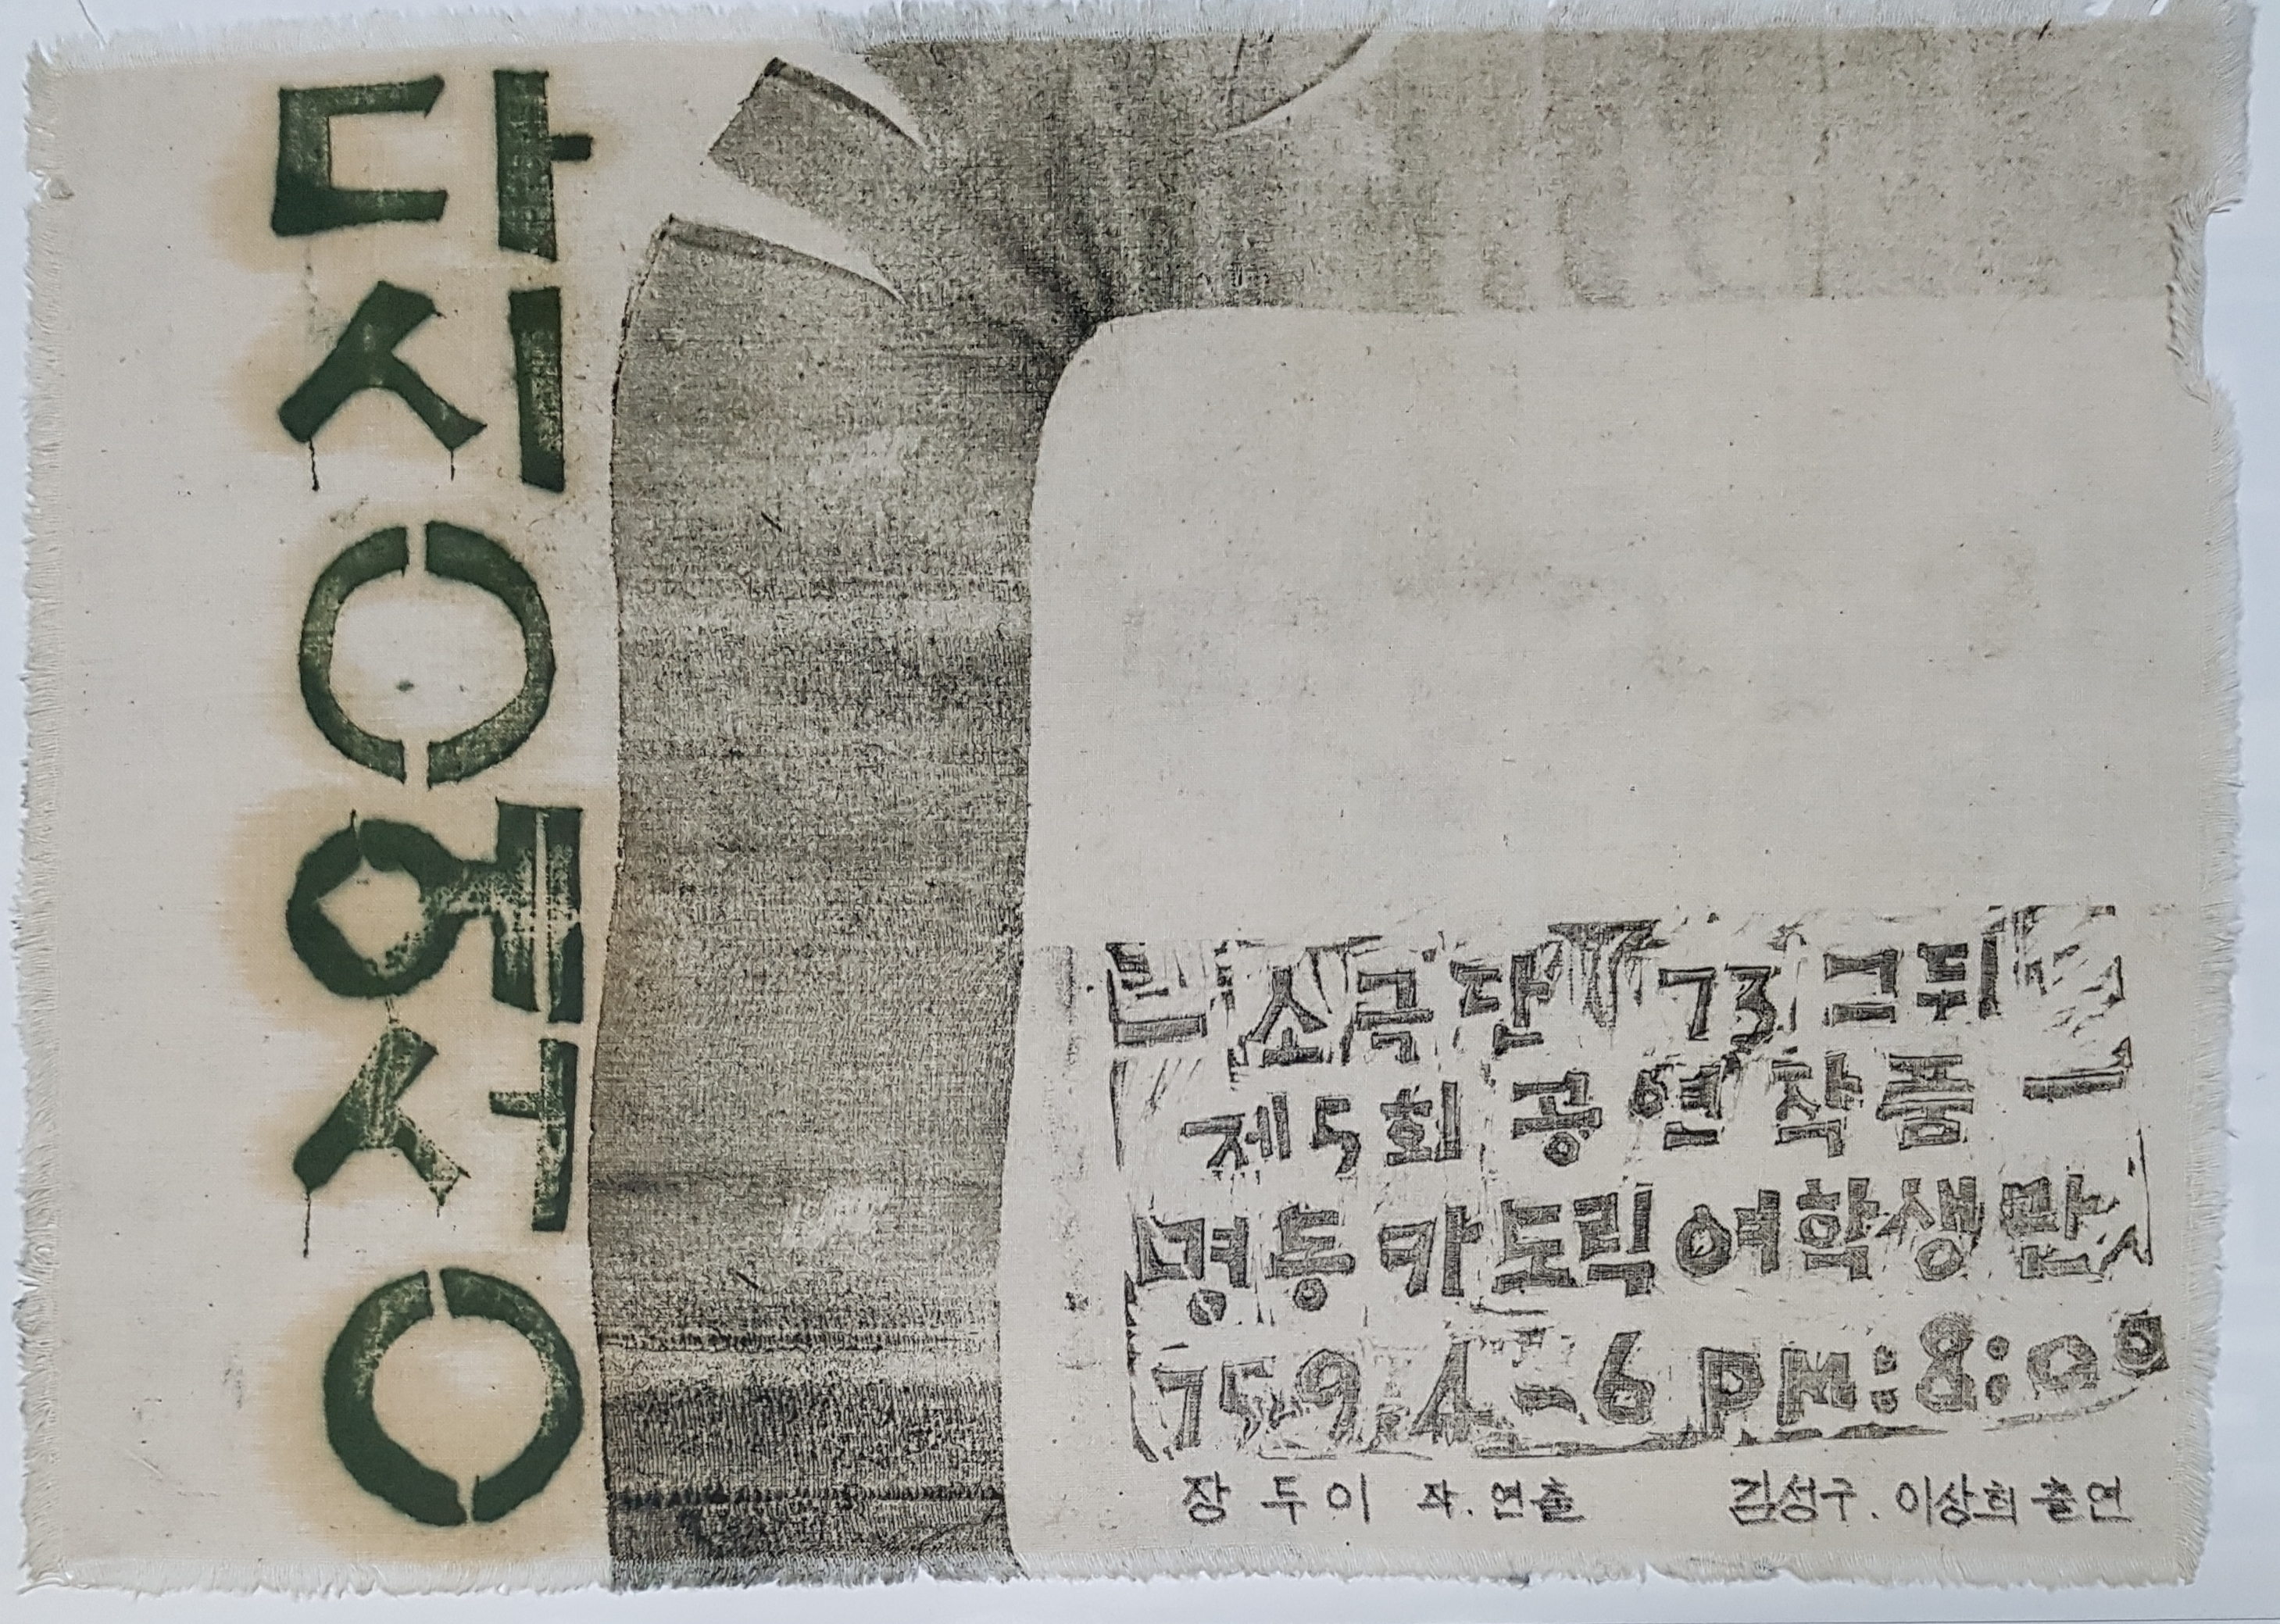 다시O에서O
소극단 73그뒤
제5회 공연작품
명동 카도릭여학생관
75.9.4-6 pm:8:00
장두이 작.연출 김성구.이상희 출연